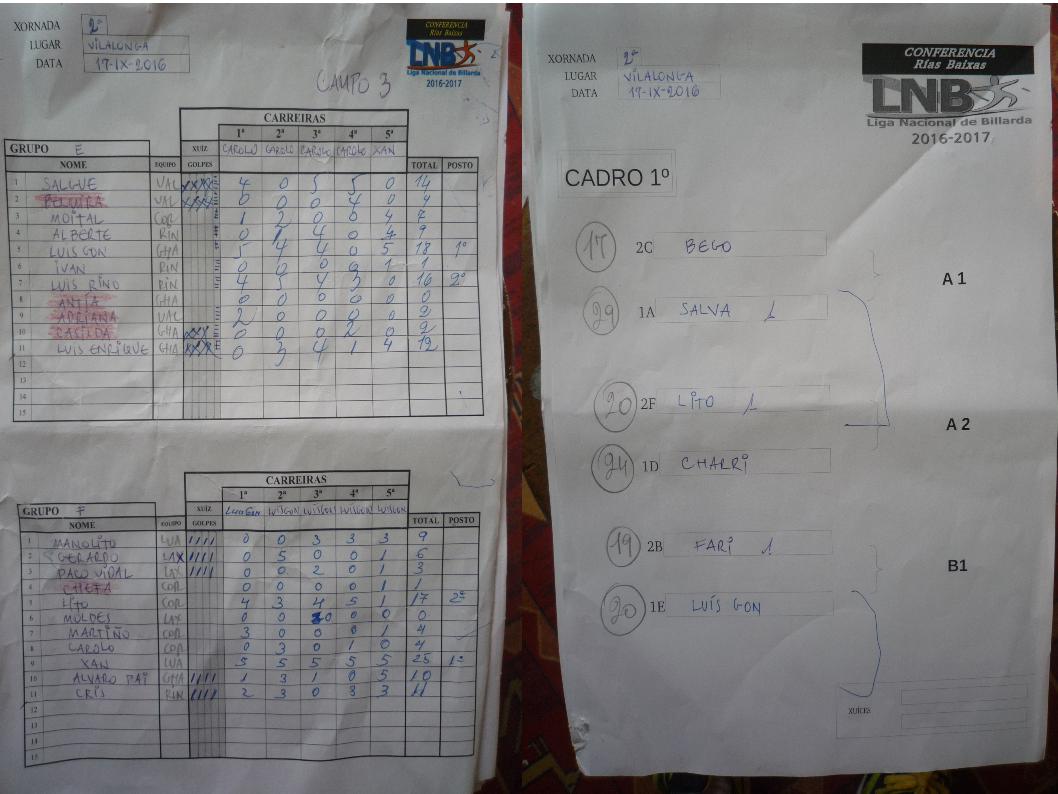 XORNADA 2ª
LUGAR VILALONGA
DATA 17-IX-2016
CONFERENCIA
Rías Baixas
LNB
Liga Nacional de Billarda
2016-2017
CAMPO 3
CARREIRAS
1ª 2ª 3ª 4ª 5ª
GRUPO E XUIZ CAROLO CAROLO CAROLO CAROLO XAN
NOME EQUIPO GOLPES TOTAL POSTO
1 SALGUE VAL XXXX 4 0 5 5 0 14
2 VAL XXXX 0 0 0 4 0 4
3 MOITAL COR 1 2 0 0 4 7
4 ALBERTE RIN 0 1 4 0 4 9
5 LUIS GON GHA 5 4 4 0 5 18 1º
6 IVAN RIN 0 0 0 0 1 1
7 LUIS RINO RIN 4 5 4 3 0 16 2º
8 ANTÍA GHA 0 0 0 0 0 0
9 ADRIANA VAL 2 0 0 0 0 2
10 CASILDA GHA XXX 0 0 0 2 0 2
11 LUIS ENRIQUE GHA XXX 0 3 4 1 4 12
12
13
14
15
CARREIRAS
1ª 2ª 3ª 4ª 5ª
GRUPO F XUÍZ LUISGON LUISGON LUISGON LUISGON LUISGON
NOME EQUIPO GOLPES TOTAL POSTO
1 MANOLITO LUA //// 0 0 3 3 3 9
2 GERARDO LAX //// 0 5 0 0 1 6
3 PACO VIDAL LAX //// 0 0 2 0 1 3
4 CHEFA COR 0 0 0 0 1 1
5 LITO COR 4 3 4 5 1 17 2º
6 MOLDES LAX 0 0 0 0 0 0
7 MARTIÑO COR 3 0 0 0 1 4
8 CAROLO COR 0 3 0 1 0 4
9 XAN LUA 5 5 5 5 5 25 1º
10 ALVARO PAI GHA //// 1 3 1 0 5 10
11 CRIS RIN //// 2 3 0 3 3 11
12
13
14
15
XORNADA 2ª
LUGAR VILALONGA
DATA 17-IX-2016
CONFERENCIA
Rías Baixas
LNB
Liga Nacional de Billarda
2016-2017
CADRO 1º
17 2C BEGO
A 1
29 1A SALVA 1
20 2F LITO 1
A 2
24 1D CHARRI
19 2B FARI 1
B1
20 1E LUÍS GON
XUÍCES